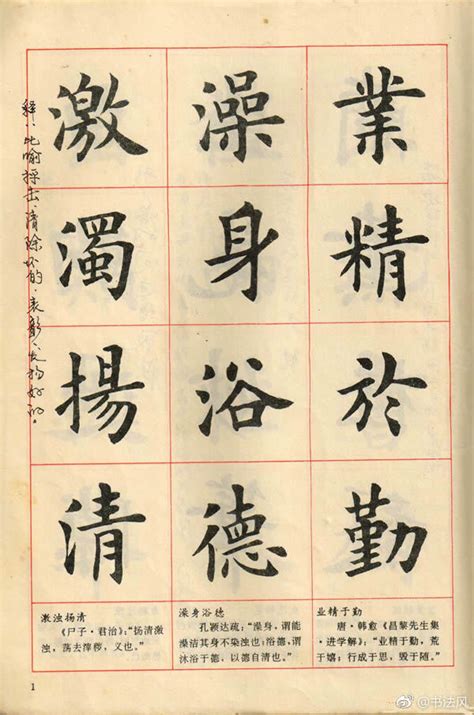 業精於勤
澡身浴德
激濁揚清
释：比喻抨击、清除坏的，表彰、发扬好的。
激浊扬清
《尸子·君治》：“扬清激
浊，荡去滓秽，义也。”
澡身浴德
孔颖达疏：“澡身，谓能
澡洁其身不染浊也；浴德，谓
沐浴于德，以德自清也。”
业精于勤
唐·韩愈《昌黎先生集
·进学解》：“业精于勤，荒
于嬉；行成于思，毁于随。”
1
@书法风